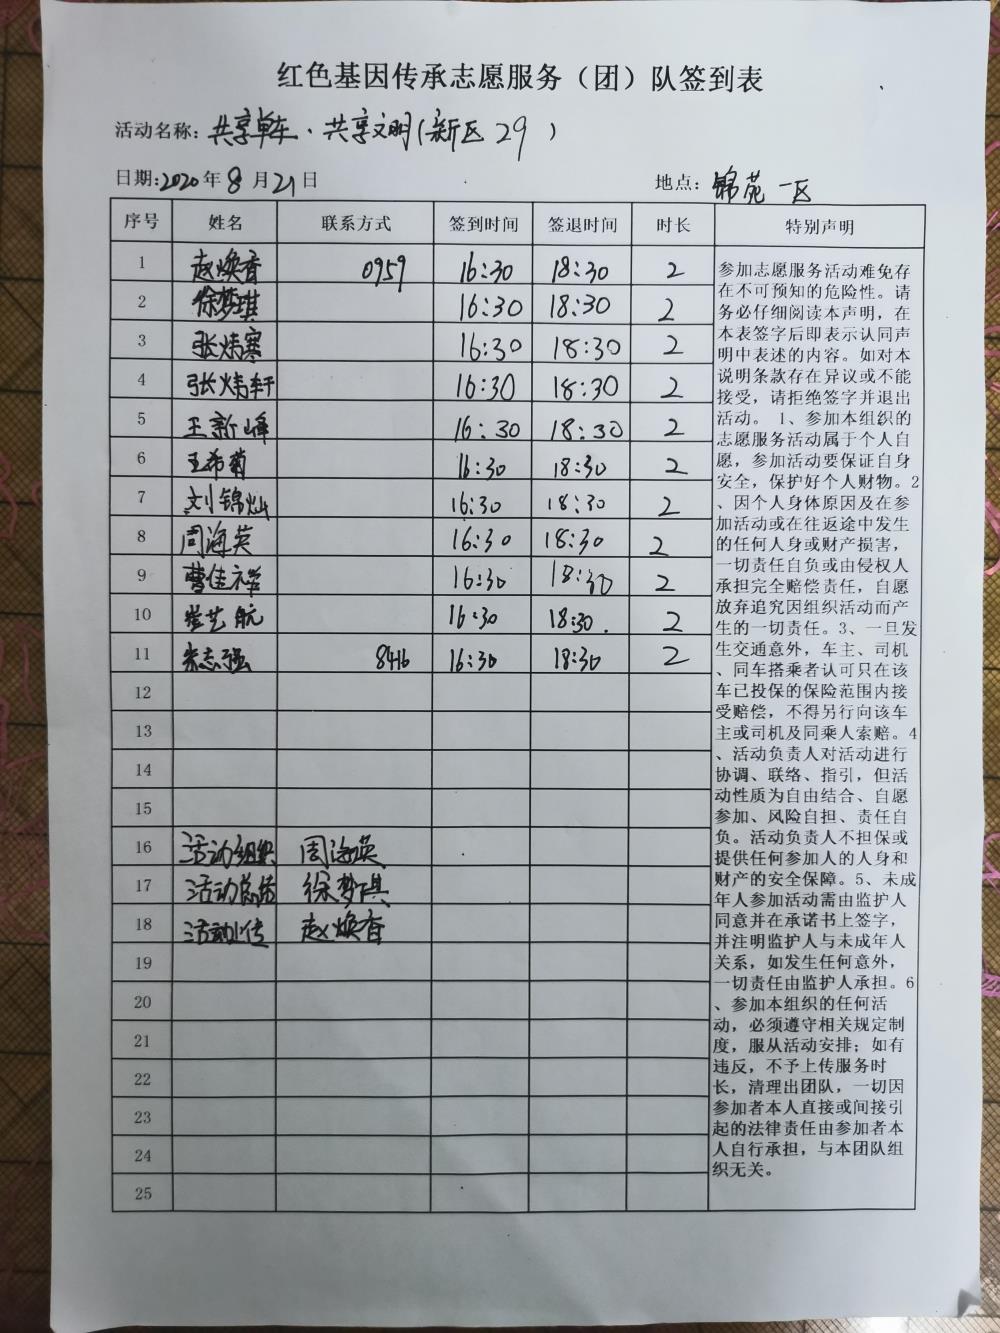 红色基因传承志愿服务（团）队签到表
活动名称：共享单车·共享文明（新区29）
日期：2020年8月21日 地点：锦苑一区
序号 姓名 联系方式 签到时间 签退时间 时长 特别声明
1 赵焕香 0959 16:30 18:30 2
2 徐梦琪 16:30 18:30 2
3 张炜寒 16:30 18:30 2
4 张炜轩 16:30 18:30 2
5 王新峰 16:30 18:30 2
6 王希菊 16:30 18:30 2
7 刘锦灿 16:30 18:30 2
8 周海英 16:30 18:30 2
9 曹佳祥 16:30 18:30 2
10 艺航 16:30 18:30. 2
11 宋志强 8416 16:30 18:30 2
12
13
14
15
16 活动组织 周海英
17 活动总结 徐梦琪
18 活动上传 赵焕香
19
20
21
22
23
24
25
参加志愿服务活动难免存
在不可预知的危险性。请
务必仔细阅读本声明，在
本表签字后即表示认同声
明中表述的内容。如对本
说明条款存在异议或不能
接受，请拒绝签字并退出
活动。 1、参加本组织的
志愿服务活动属于个人自
愿，参加活动要保证自身
安全，保护好个人财物。2
、因个人身体原因及在参
加活动或在往返途中发生
的任何人身或财产损害，
一切责任自负或由侵权人
承担完全赔偿责任，自愿
放弃追究因组织活动而产
生的一切责任。3、一旦发
生交通意外，车主、司机
、同车搭乘者认可只在该
车已投保的保险范围内接
受赔偿，不得另行向该车
主或司机及同乘人索赔。4
、活动负责人对活动进行
协调、联络、指引，但活
动性质为自由结合、自愿
参加、风险自担、责任自
负。活动负责人不担保或
提供任何参加人的人身和
财产的安全保障。5、未成
年人参加活动需由监护人
同意并在承诺书上签字，
并注明监护人与未成年人
关系，如发生任何意外，
一切责任由监护人承担。6
、参加本组织的任何活
动，必须遵守相关规定制
度，服从活动安排；如有
违反，不予上传服务时
长，清理出团队，一切因
参加者本人直接或间接引
起的法律责任由参加者本
人自行承担，与本团队组
织无关。